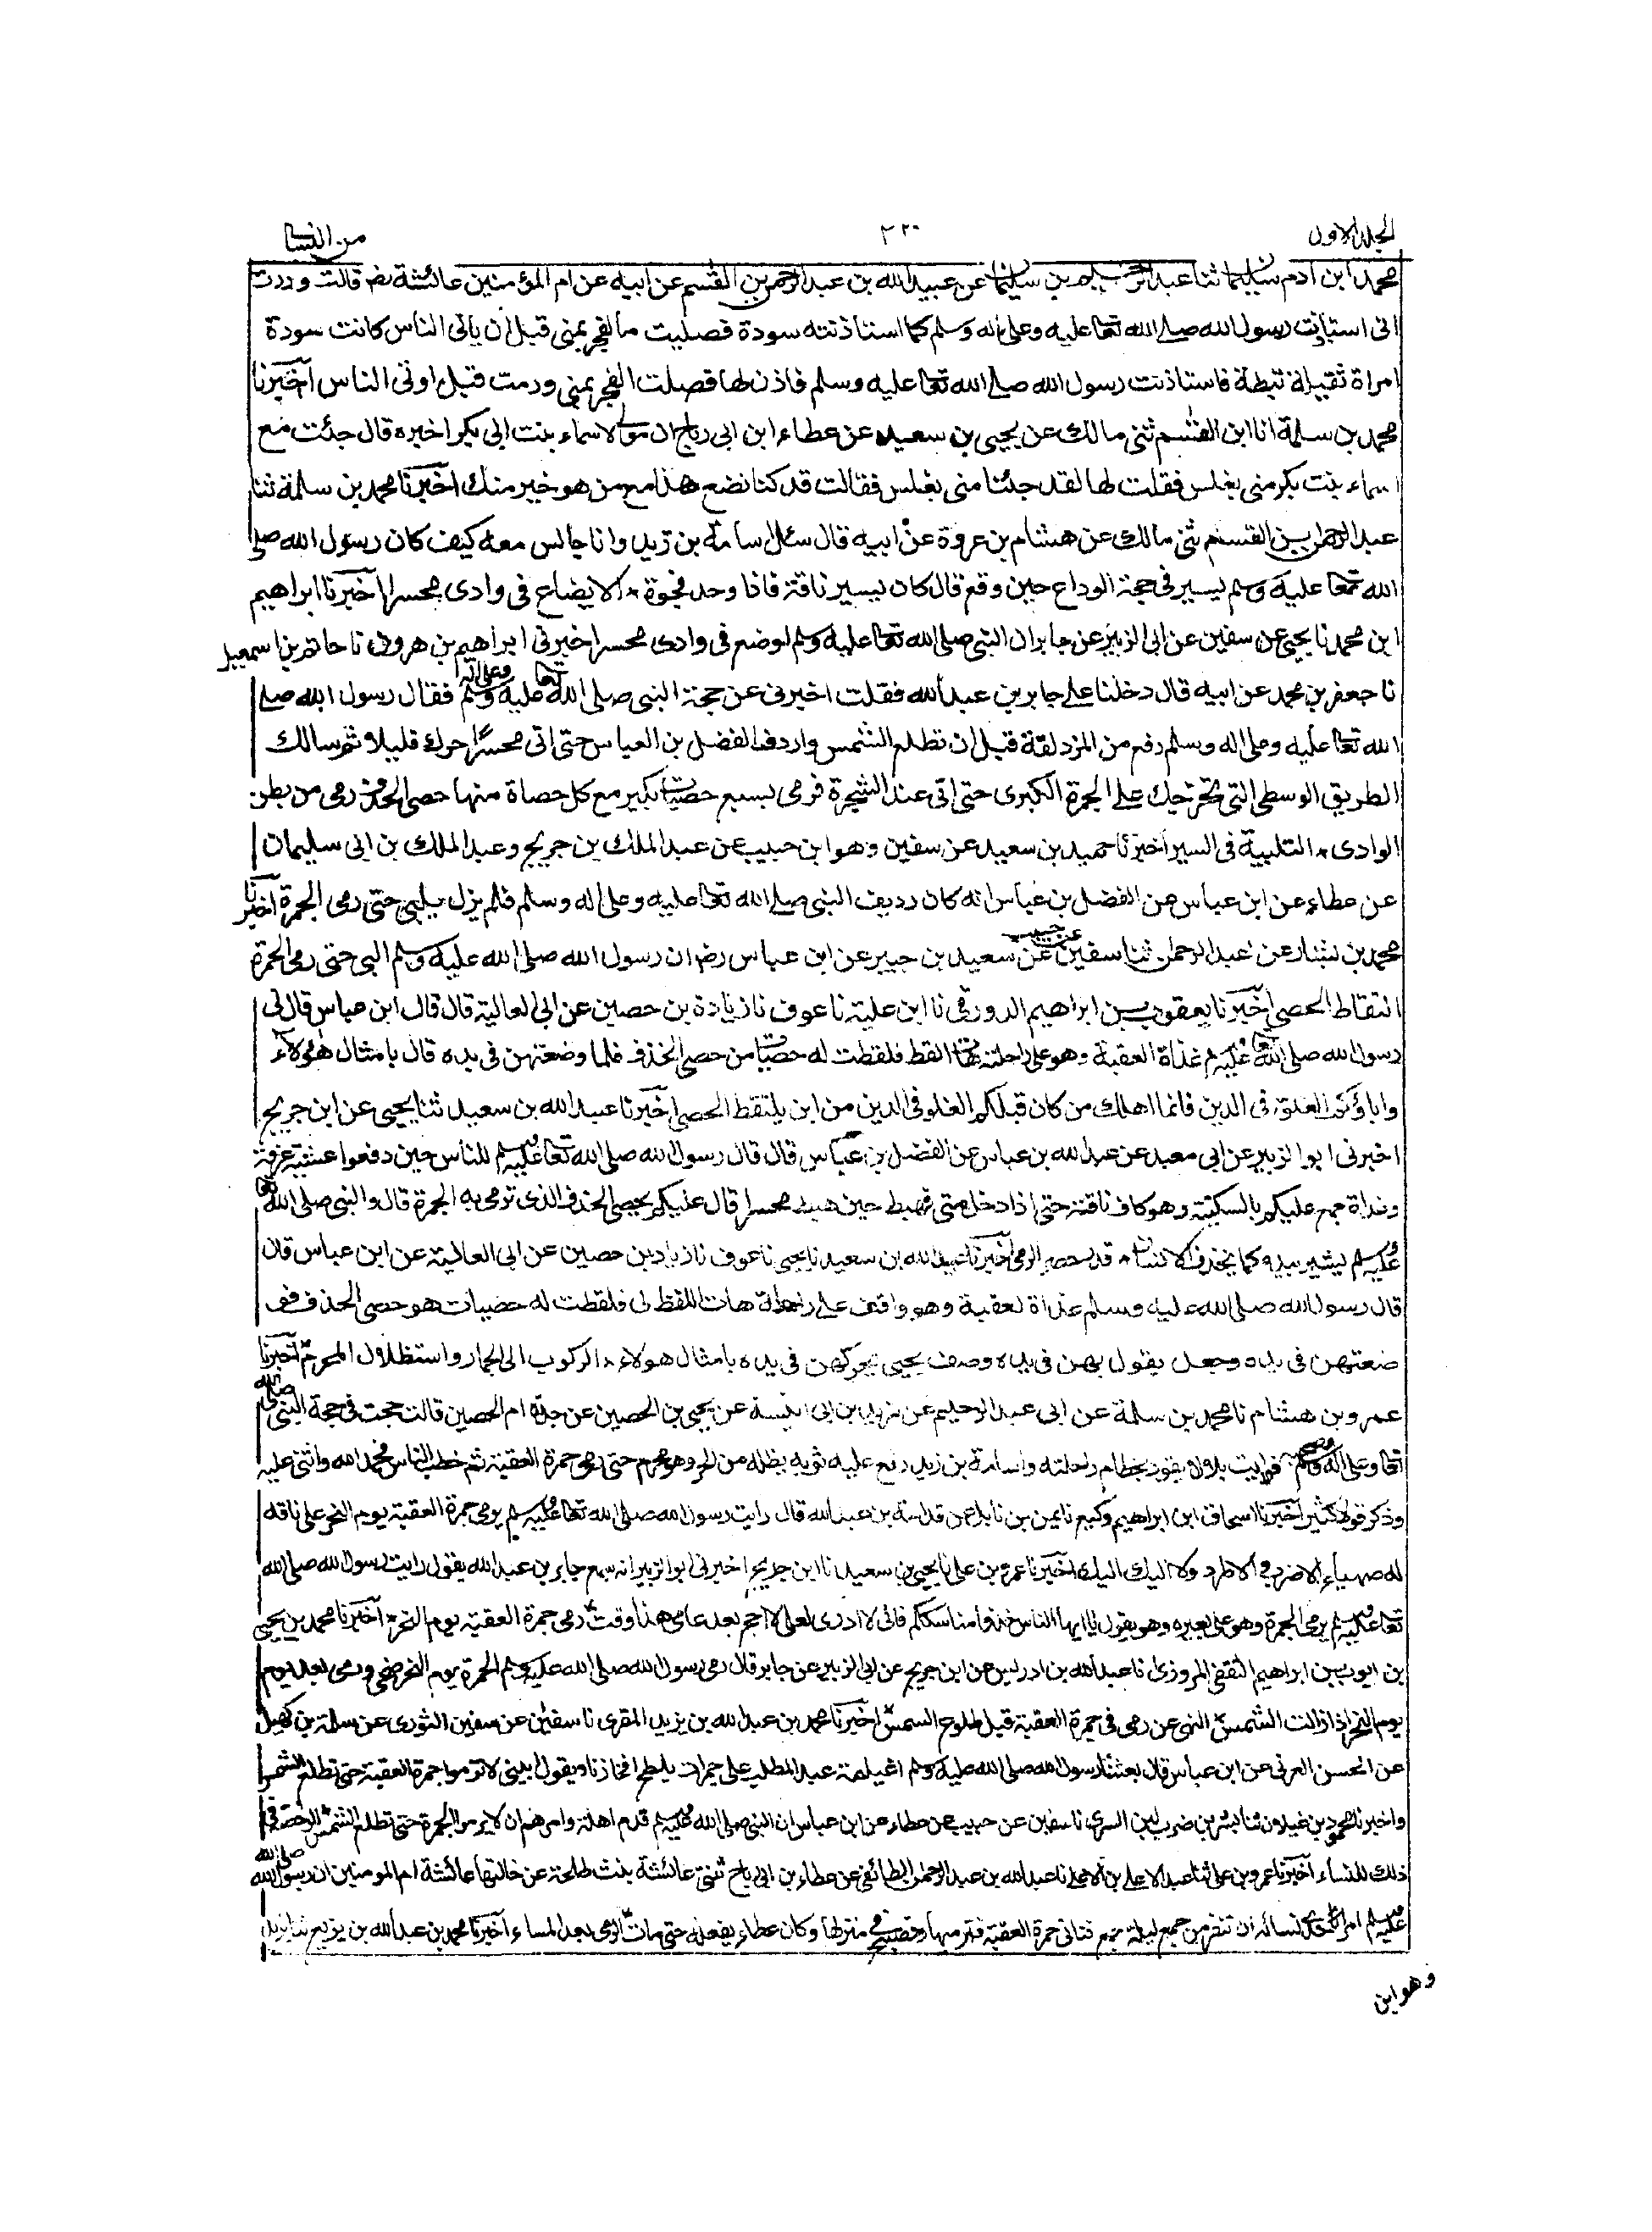 الجلد الاول ٣٢٠ من النسا
محمد ابن ادم سليمان ثنا عبد الرحيم بن سليمان عن عبيد الله بن عبد الرحمن بن القسم عن ابيه عن ام المؤمنين عائشة رض قالت وددت
انى استاذنت رسول الله صلى الله تعا عليه وعلى اله وسلم كما استاذنته سودة فصليت مالفجر بمنى قبل ان ياتى الناس كانت سودة
امراة ثقيلة ثبطة فاستاذنت رسول الله صلى الله تعا عليه وسلم فاذن لها فصلت الفجر بمنى ورمت قبل اوتى الناس اخبرنا
محمد بن سلمة انا ابن القسم ثنى مالك عن يحيى بن سعيد عن عطاء ابن ابى رباح ان مولى لاسماء بنت ابى بكر اخبره قال جئت مع
اسماء بنت بكر منى بغلس فقلت لها لقد جئنا منى بغلس فقالت قد كنا نضع هذا مع من هو خير منك اخبرنا محمد بن سلمة ثنا
عبد الرحمن بن القسم ثنى مالك عن هشام بن عروة عن ابيه قال سئل اسامة بن زيد وانا جالس معه كيف كان رسول الله صلى
الله تعا عليه وسلم يسير فى حجة الوداع حين وقع قال كان يسير ناقة فاذا وجد فجوة * الايضاع فى وادى محسر اخبرنا ابراهيم
ابن محمد نا يحيى عن سفين عن ابى الزبير عن جابر ان النبى صلى الله تعا عليه وسلم لوضع فى وادى محسر اخبرنى ابراهيم بن هرون نا حاتم بن اسمعيل
نا جعفر بن محمد عن ابيه قال دخلنا على جابر بن عبد الله فقلت اخبرنى عن حجة النبى صلى الله تعا عليه وعلى اله وسلم فقال رسول الله صلى
الله تعا عليه وعلى اله وسلم دفع من المزدلفة قبل ان تطلع الشمس واردف الفضل بن العباس حتى اتى محسرا حرك قليلا ثم سالك
الطريق الوسطى التى تخرجك على الجمرة الكبرى حتى اتى عند الشجرة فرمى بسبع حصيات يكبر مع كل حصاة منها حصى الخذف رمى من بطن
الوادى * التلبية فى السير اخبرنا حميد بن سعيد عن سفين وهو ابن حبيب عن عبد الملك بن جريج وعبد الملك بن ابى سليمان
عن عطاء عن ابن عباس عن الفضل بن عباس انه كان رديف النبى صلى الله تعا عليه وعلى اله وسلم فلم يزل يلبى حتى رمى الجمرة اخبرنا
محمد بن بشار عن عبد الرحمن ثنا سفين عن حبيب عن سعيد بن جبير عن ابن عباس رض ان رسول الله صلى الله عليه وسلم لبى حتى رمى الجمرة
التقاط الحصى اخبرنا يعقوب بن ابراهيم الدورقى نا ابن علية نا عوف نا زيادة بن حصين عن ابى العالية قال قال ابن عباس قال لى
رسول الله صلى الله تعا عليه وسلم غداة العقبة وهو على راحلته القط فلقطت له حصيات من حصى الخذف فلما وضعتهن فى يده قال بامثال هؤلاء
واياكم الغلو فى الدين فانما اهلك من كان قبلكم الغلو فى الدين من اين يلتقط الحصى اخبرنا عبيد الله بن سعيد ثنا يحيى عن ابن جريج
اخبرنى ابو الزبير عن ابى معبد عن عبد الله بن عباس عن الفضل بن عباس قال قال رسول الله صلى الله تعا عليه وسلم للناس حين دفعوا عشية عرفة
وغداة جمع عليكم بالسكينة وهو كاف ناقته حتى اذا دخل منى فهبط حين هبط محسرا قال عليكم بحصى الخذف الذى ترمى به الجمرة قال والنبى صلى الله تعا
عليه وسلم يشير بيده كما يخذف الانسان * قدر حصى الرمى اخبرنا عبيد الله بن سعيد نا يحيى نا عوف نا زياد بن حصين عن ابى العالية عن ابن عباس قال
قال رسول الله صلى الله عليه وسلم غداة لعقبة وهو واقف على راحلة هات القط لى فلقطت له حصيات هو حصى الخذف فو
ضعتهن فى يده وجعل يقول بهن فى يده وصف يحيى تحركهن فى يده بامثال هولاء * الركوب الى الجمار واستظلال المحرم اخبرنا
عمرو بن هشام نا محمد بن سلمة عن ابى عبد الرحيم عن زيد بن ابى انيسة عن يحيى بن الحصين عن جدة ام الحصين قالت حججت فى حجة النبى صلى الله
تعا وعلى اله وسلم فرايت بلال يقود بخطام راحلته واسامة بن زيد رفع عليه ثوبه يظله من الحر وهو محرم حتى رمى جمرة العقبة ثم خطب الناس فحمد الله واثنى عليه
وذكر قولا كثيرا اخبرنا اسحاق ابن ابراهيم وكيع نا يمن بن نابل عن قدامة بن عبد الله قال رايت رسول الله صلى الله تعا عليه وسلم يرمى جمرة العقبة يوم النحر على ناقه
له صهباء لا ضرب ولا طرد ولا اليك اليك اخبرنا عمرو بن على نا يحيى بن سعيد نا ابن جريج اخبرنى ابو الزبير انه سمع جابر بن عبد الله يقول رايت رسول الله صلى الله
تعا عليه وسلم يرمى الجمرة وهو على بعيره وهو يقول يا ايها الناس خذوا مناسككم فانى لا ادرى لعلى لا احج بعد عامى هذا وقت رمى جمرة العقبة يوم النحر * اخبرنا محمد بن يحيى
بن ايوب بن ابراهيم الثقفى المروزى نا عبد الله بن ادريس عن ابن جريج عن ابى الزبير عن جابر قال رمى رسول الله صلى الله عليه وسلم الجمرة يوم النحر ضحى ورمى بعد يوم
يوم النحر اذا زالت الشمس النهى عن رمى فى جمرة العقبة قبل طلوع الشمس اخبرنا محمد بن عبد الله بن يزيد المقرى نا سفين عن سفين الثورى عن سلمة بن كهيل
عن الحسن العرنى عن ابن عباس قال بعثنا رسول الله صلى الله عليه وسلم اغيلمة عبد المطلب على حمرات يلطح افخاذنا ويقول ابينى لا ترموا جمرة العقبة حتى تطلع الشمس
واخبرنا محمود بن غيلان ثنا بشر بن السرى نا سفين عن حبيب عن عطاء عن ابن عباس ان النبى صلى الله عليه وسلم قدم اهله وامرهم ان لا يرموا الجمرة حتى تطلع الشمس الرخصة فى
ذلك للنساء اخبرنا عمرو بن على ثنا عبد الاعلى بن الاعلى نا عبد الله بن عبد الرحمن الطائفى عن عطاء بن ابى رباح ثنى عائشة بنت طلحة عن خالتها عائشة ام المومنين ان رسول الله صلى الله
عليه وسلم امر احدى نسائه ان تنفر من جمع ليلة جمع فتاتى جمرة العقبة فترميها وتصبح فى منزلها وكان عطاء يفعله حتى مات الرمى بعد المساء اخبرنا محمد بن عبد الله بن بزيع نا يزيد
وهو ابن